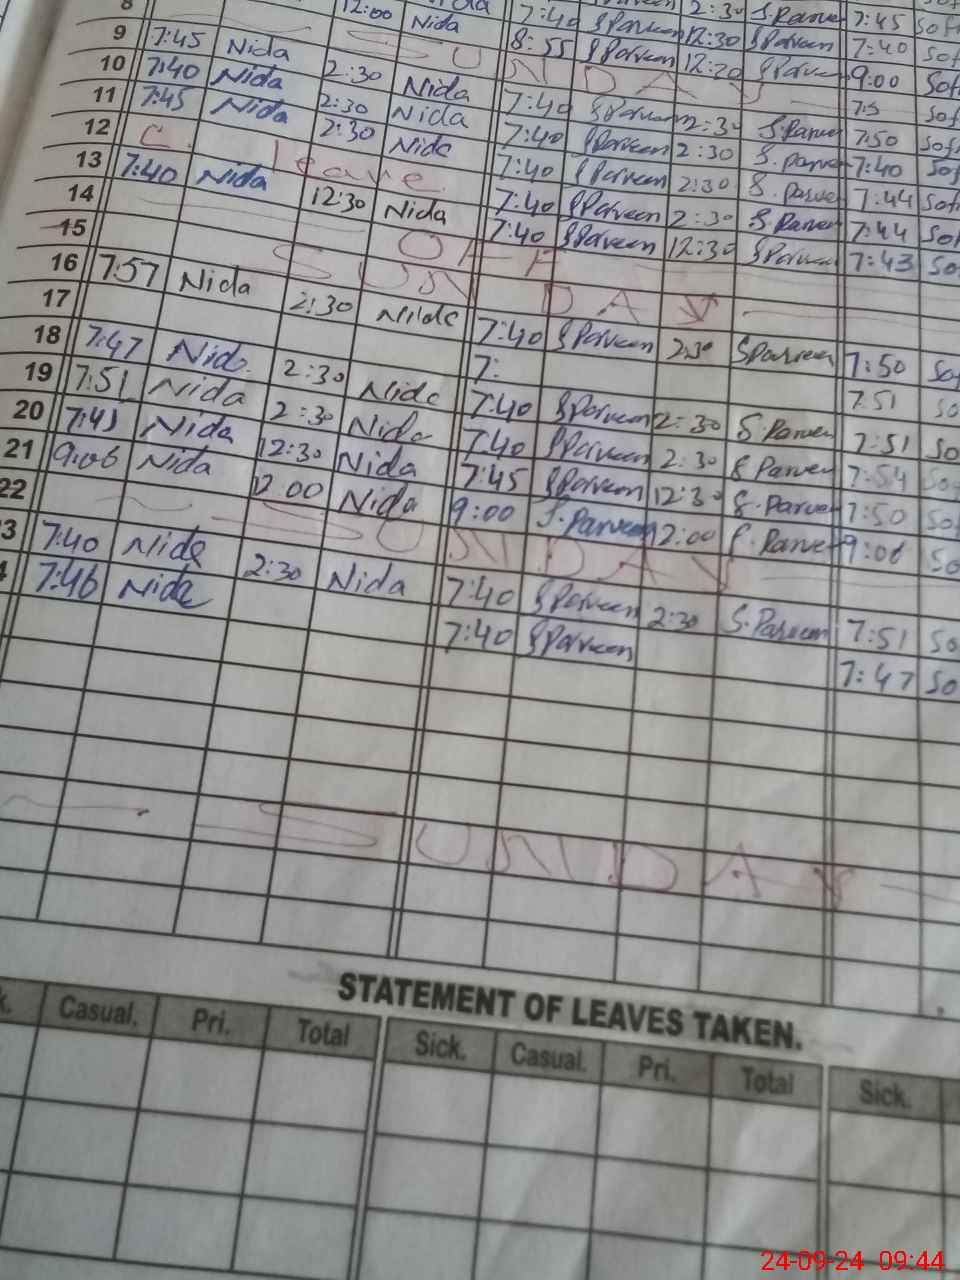 8 12:00 Nida 7:40 SParveen 2:30 S.Parveen 7:45 Sof
9 7:45 Nida 8:55 SParveen 12:30 SParveen 7:40 Sof
SUNDAY 9:00 Sof
10 7:40 Nida 2:30 Nida 7:40 SParveen 2:30 S.Parveen Sof
11 7:45 Nida 2:30 Nida 7:40 SParveen 2:30 S.Parveen 7:50 Sof
12 2:30 Nida 7:40 SParveen 2:30 S.Parveen 7:40 Sof
C. leave
13 7:40 Nida 12:30 Nida 7:40 SParveen 2:30 S.Parveen 7:44 Sof
14 7:40 SParveen 12:30 SParveen 7:44 So
15 OFF 7:43 So
SUNDAY
16 7:57 Nida 2:30 Nida 7:40 SParveen 2:30 SParveen 7:50 Sof
17 7: 7:51 So
18 7:47 Nida 2:30 Nida 7:40 SParveen 2:30 S.Parveen 7:51 So
19 7:51 Nida 2:30 Nida 7:40 SParveen 2:30 S Parveen 7:54 So
20 7:43 Nida 12:30 Nida 7:45 SParveen 12:30 S.Parveen 7:50 Sof
21 9:06 Nida 12:00 Nida 9:00 S.Parveen 12:00 S.Parveen 9:06 So
22 SUNDAY
3 7:40 Nida 2:30 Nida 7:40 SParveen 2:30 S.Parveen 7:51 So
4 7:46 Nida 7:40 SParveen 7:47 So
SUNDAY
STATEMENT OF LEAVES TAKEN.
k. Casual. Pri. Total Sick. Casual. Pri. Total Sick.
24-09-24 09:44